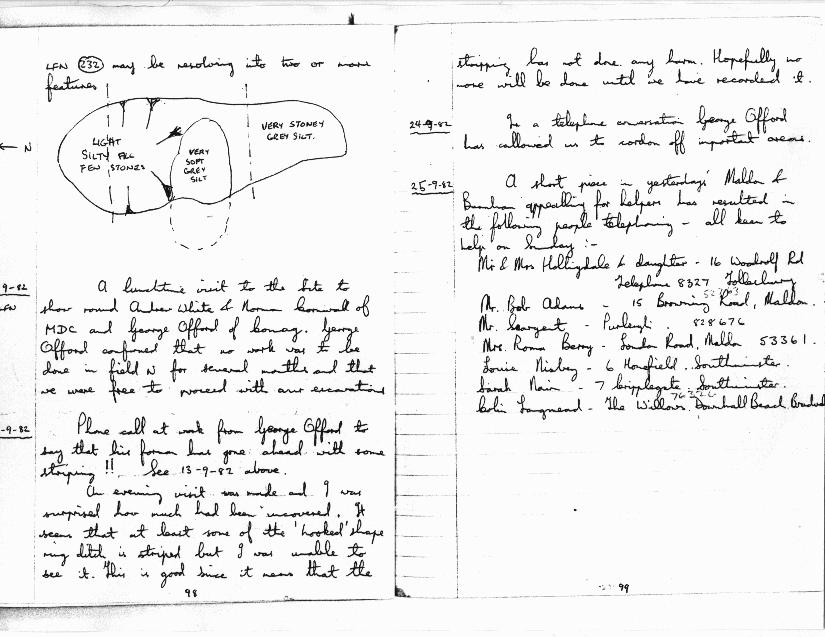 LFN 232 may be resolving into two or more
features
N
LIGHT
SILTY FILL
FEW STONES
VERY
SOFT
GREY
SILT
VERY STONEY
GREY SILT.
9-82
LFN
A lunchtime visit to the site to
show round Andrew White & Norman Cornwall of
MDC and George Offord of . George
Offord confirmed that no work was to be
done in field N for several months and that
we were free to proceed with our excavations
-9-82
Phone call at work from George Offord to
say that his forman has gone ahead with some
striping !! See 13-9-82 above.
An evening visit was made and I was
surprised how much had been uncovered. It
seems that at least some of the 'hooked' shape
ring ditch is striped but I was unable to
see it. This is good since it means that the
98
stripping has not done any harm. Hopefully no
more will be done until we have recorded it.
24-9-82
In a telephone conversation George Offord
has callowed us to cordon off important areas.
25-9-82
A short piece in yesterdays' Maldon &
Burnham appealling for helpers has resulted in
the following people telephoning - all keen to
help on Sunday :-
Mr & Mrs Hollingdale & daughter - 16 Woodrolf Rd
Telephone 8327 Tollesbury
Mr. Bob Adams - 15 Browning Road, Maldon.
Mr. Sargent - Purleigh. 828676
Mrs. Roma Berry - London Road, Maldon 53361.
Louise Nisbey - 6 Southminster.
Sarah Nain - 7 Cripplegate Southminster.
Colin Langmead - The Willows Downhall Beach, Bradwell
99